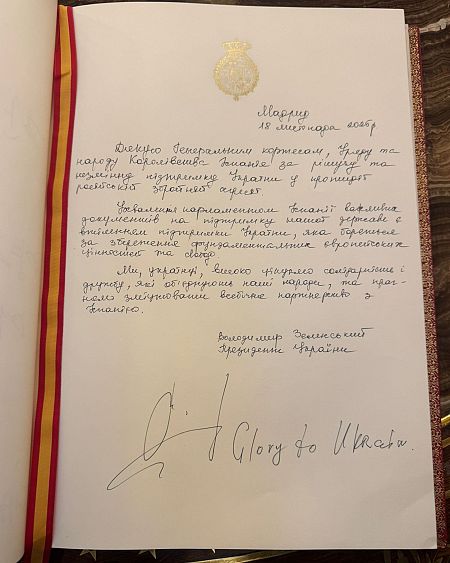 Мадрид
18 листопада 2025р
Дякую Генеральним кортесам, Уряду та
народу Королівства Іспанія за рішучу та
незмінну підтримку України у протидії
російській збройній агресії.
Ухвалення парламентом Іспанії важливих
документів на підтримку нашої держави є
втіленням підтримки України, яка бореться
за збереження фундаментальних європейських
цінностей та свобод.
Ми, українці, високо цінуємо солідарність і
дружбу, які об'єднують наші народи, та
зміцнювати всебічне партнерство з
Іспанією.
Володимир Зеленський
Президент України
Glory to Ukraine.